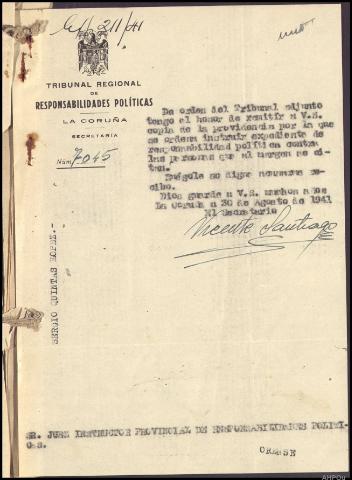 211/41
TRIBUNAL REGIONAL
DE
RESPONSABILIDADES POLÍTICAS
LA CORUÑA
SECRETARÍA
Núm. 7045
De orden del Tribunal adjunto
tengo el honor de remitir a V.S.
copia de la providencia por la que
se ordena instruir expediente de
responsabilidad política contra
las personas que al margen se ci-
tan.
Ruégole se digne acusarme re-
cibo.
Dios guarde a V.S. muchos años
La Coruña a 30 de Agosto de 1941
El Secretario
Vicente Santiago
SERGIO QUINTAS LOPEZ.-
SR. JUEZ INSTRUCTOR PROVINCIAL DE RESPONSABILIDADES POLITI-
CAS.
ORENSE
AHPOu